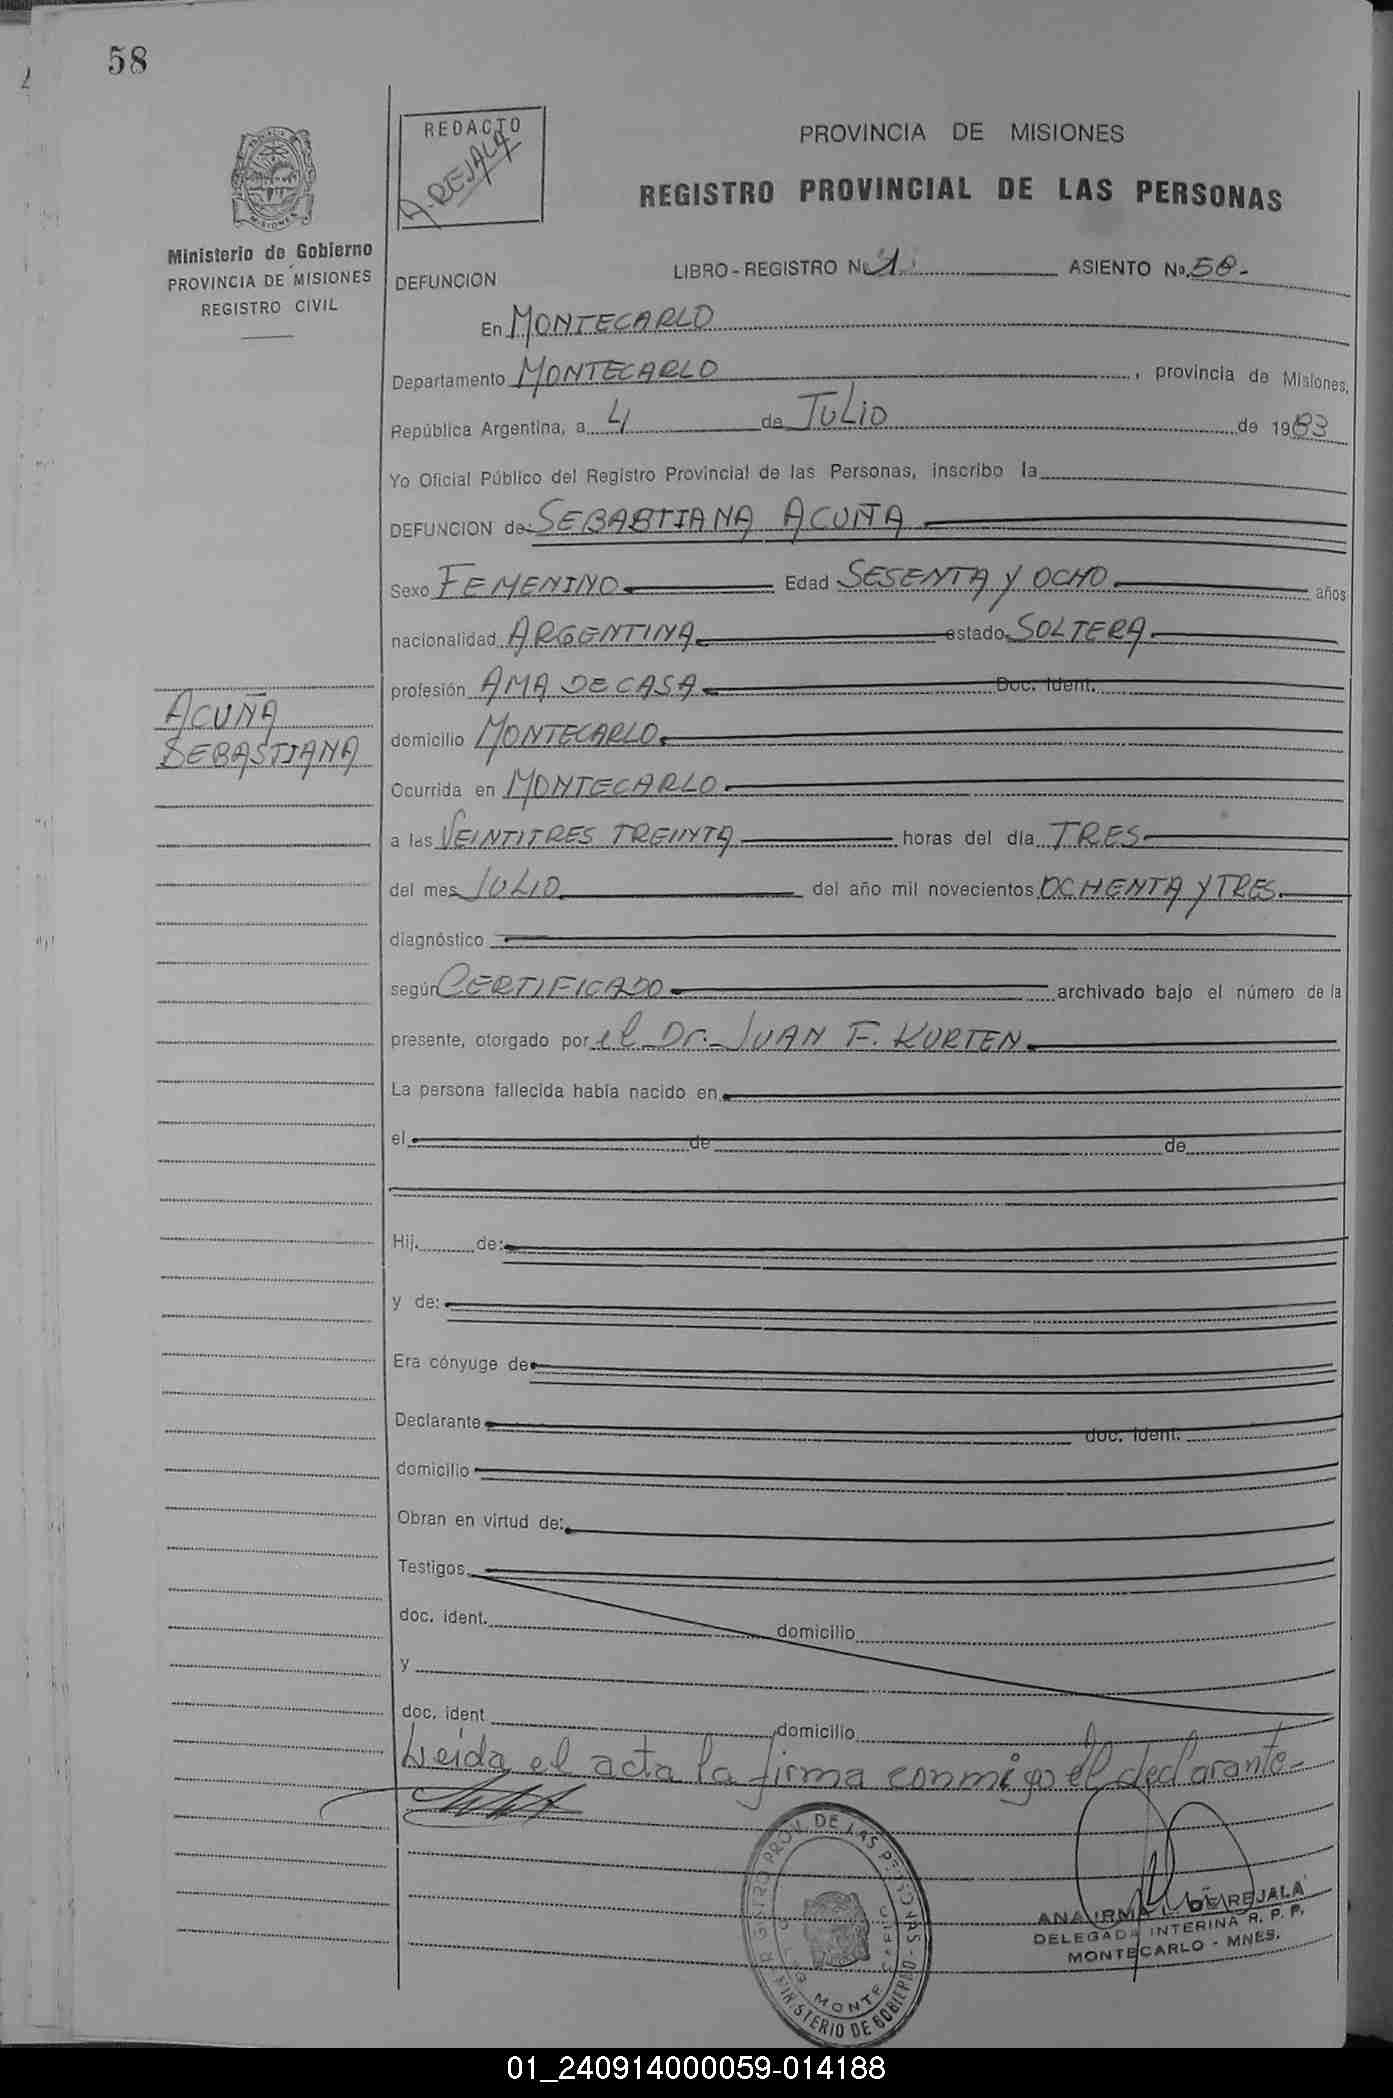 58
REDACTO
A. REJALA
PROVINCIA DE MISIONES
REGISTRO PROVINCIAL DE LAS PERSONAS
MISIONES
Ministerio de Gobierno
PROVINCIA DE MISIONES
REGISTRO CIVIL
DEFUNCION
LIBRO - REGISTRO Nº 1 ASIENTO Nº. 58.-
En MONTECARLO
Departamento MONTECARLO, provincia de Misiones,
República Argentina, a 4 de JULIO de 1983
Yo Oficial Público del Registro Provincial de las Personas, inscribo la
DEFUNCION de: SEBASTIANA ACUÑA
Sexo FEMENINO Edad SESENTA Y OCHO años
nacionalidad ARGENTINA estado SOLTERA
profesión AMA DE CASA Doc. Ident.
ACUÑA
SEBASTIANA
domicilio MONTECARLO
Ocurrida en MONTECARLO
a las VEINTITRES TREINTA horas del día TRES
del mes JULIO del año mil novecientos OCHENTA Y TRES
diagnóstico
según CERTIFICADO archivado bajo el número de la
presente, otorgado por el Dr. JUAN F. KURTEN
La persona fallecida había nacido en
el de de
Hij. de:
y de:
Era cónyuge de
Declarante doc. ident.
domicilio
Obran en virtud de:
Testigos
doc. ident. domicilio
y
doc. ident domicilio
Leída el acta la firma conmigo el declarante-
REGISTRO PROV. DE LAS PERSONAS - MINISTERIO DE GOBIERNO
ANA IRMA L. DE REJALA
DELEGADA INTERINA R. P. P.
MONTECARLO - MNES.
01_240914000059-014188